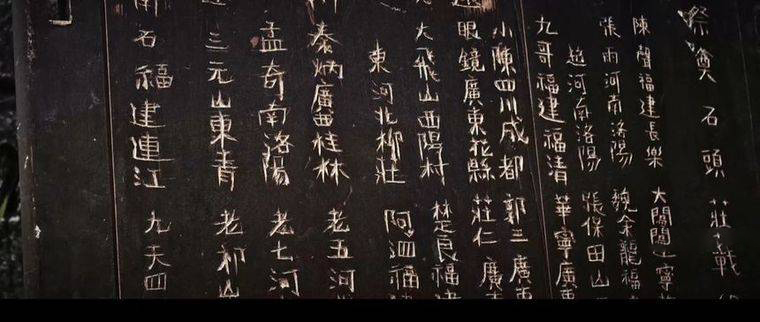 祭奠石頭莊戰
陳聲福建長樂 大寧
張雨河南洛陽 魏余龍福
河南洛陽 張保田山
九哥福建福清 華寧廣
小陳四川成都 郭三廣
眼鏡廣東花縣 莊仁廣
大飛山西陽村 楚良福
東河北柳莊 阿泗福
泰炳廣西桂林 老五河
孟奇南洛陽 老七河
三元山東青 老祁山
石福建連江 九天四